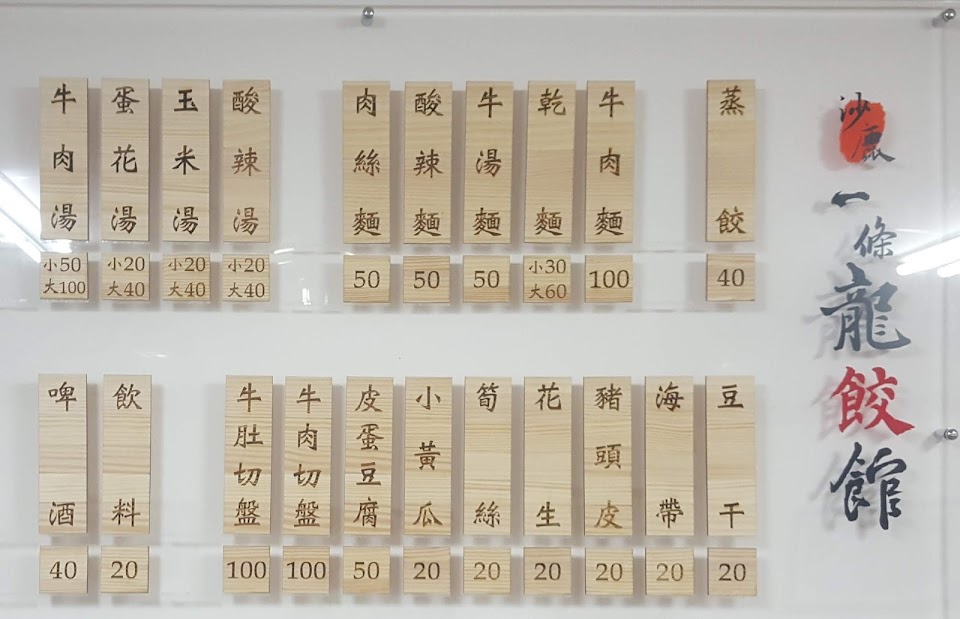 沙鹿一條龍餃館
蒸餃
40
牛肉麵
100
乾麵
小30
大60
牛湯麵
50
酸辣麵
50
肉絲麵
50
酸辣湯
小20
大40
玉米湯
小20
大40
蛋花湯
小20
大40
牛肉湯
小50
大100
豆干
20
海帶
20
豬頭皮
20
花生
20
筍絲
20
小黃瓜
20
皮蛋豆腐
50
牛肉切盤
100
牛肚切盤
100
飲料
20
啤酒
40